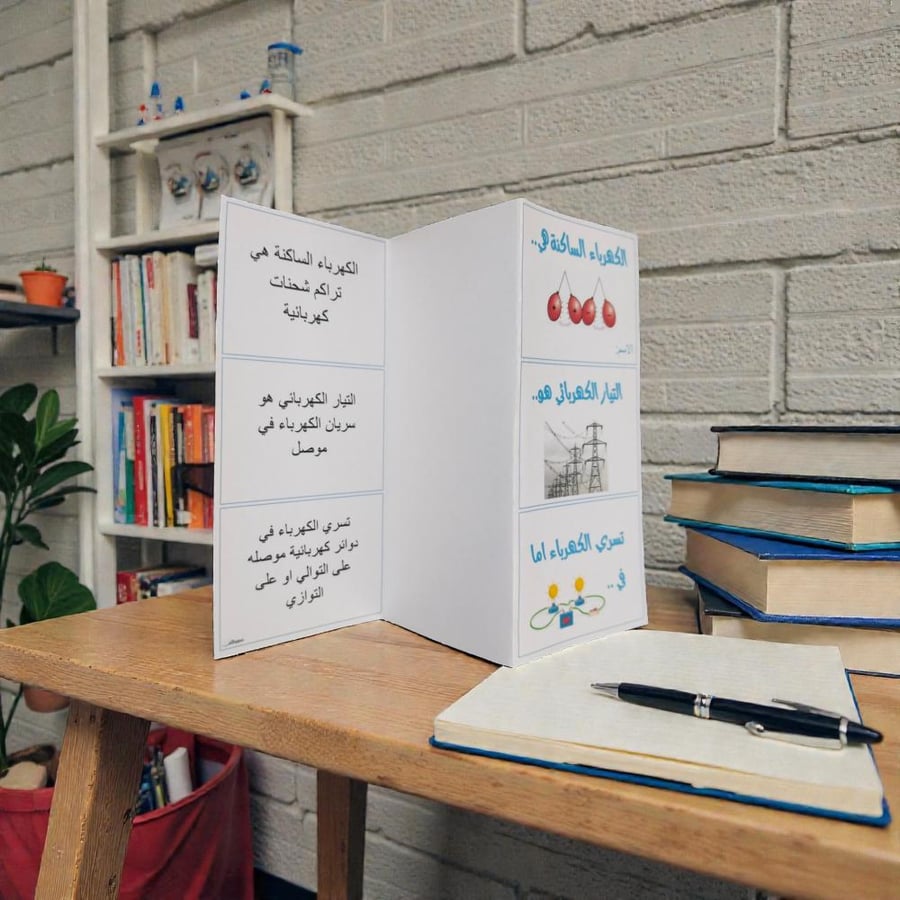 الكهرباء الساكنة هي..
الاسم:
التيار الكهربائي هو..
تسري الكهرباء اما
في ..
الكهرباء الساكنة هي
تراكم شحنات
كهربائية
التيار الكهربائي هو
سريان الكهرباء في
موصل
تسري الكهرباء في
دوائر كهربائية موصله
على التوالي او على
التوازي